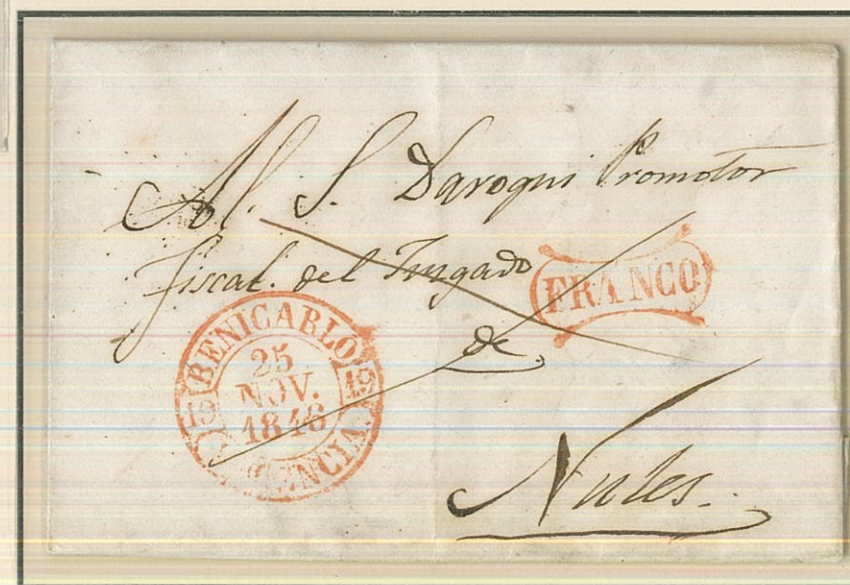 Al. S. Daroqui Promotor
fiscal. del Juzgado
de
Nules.
FRANCO
BENICARLO
25
NOV.
1846
19 19
VALENCIA